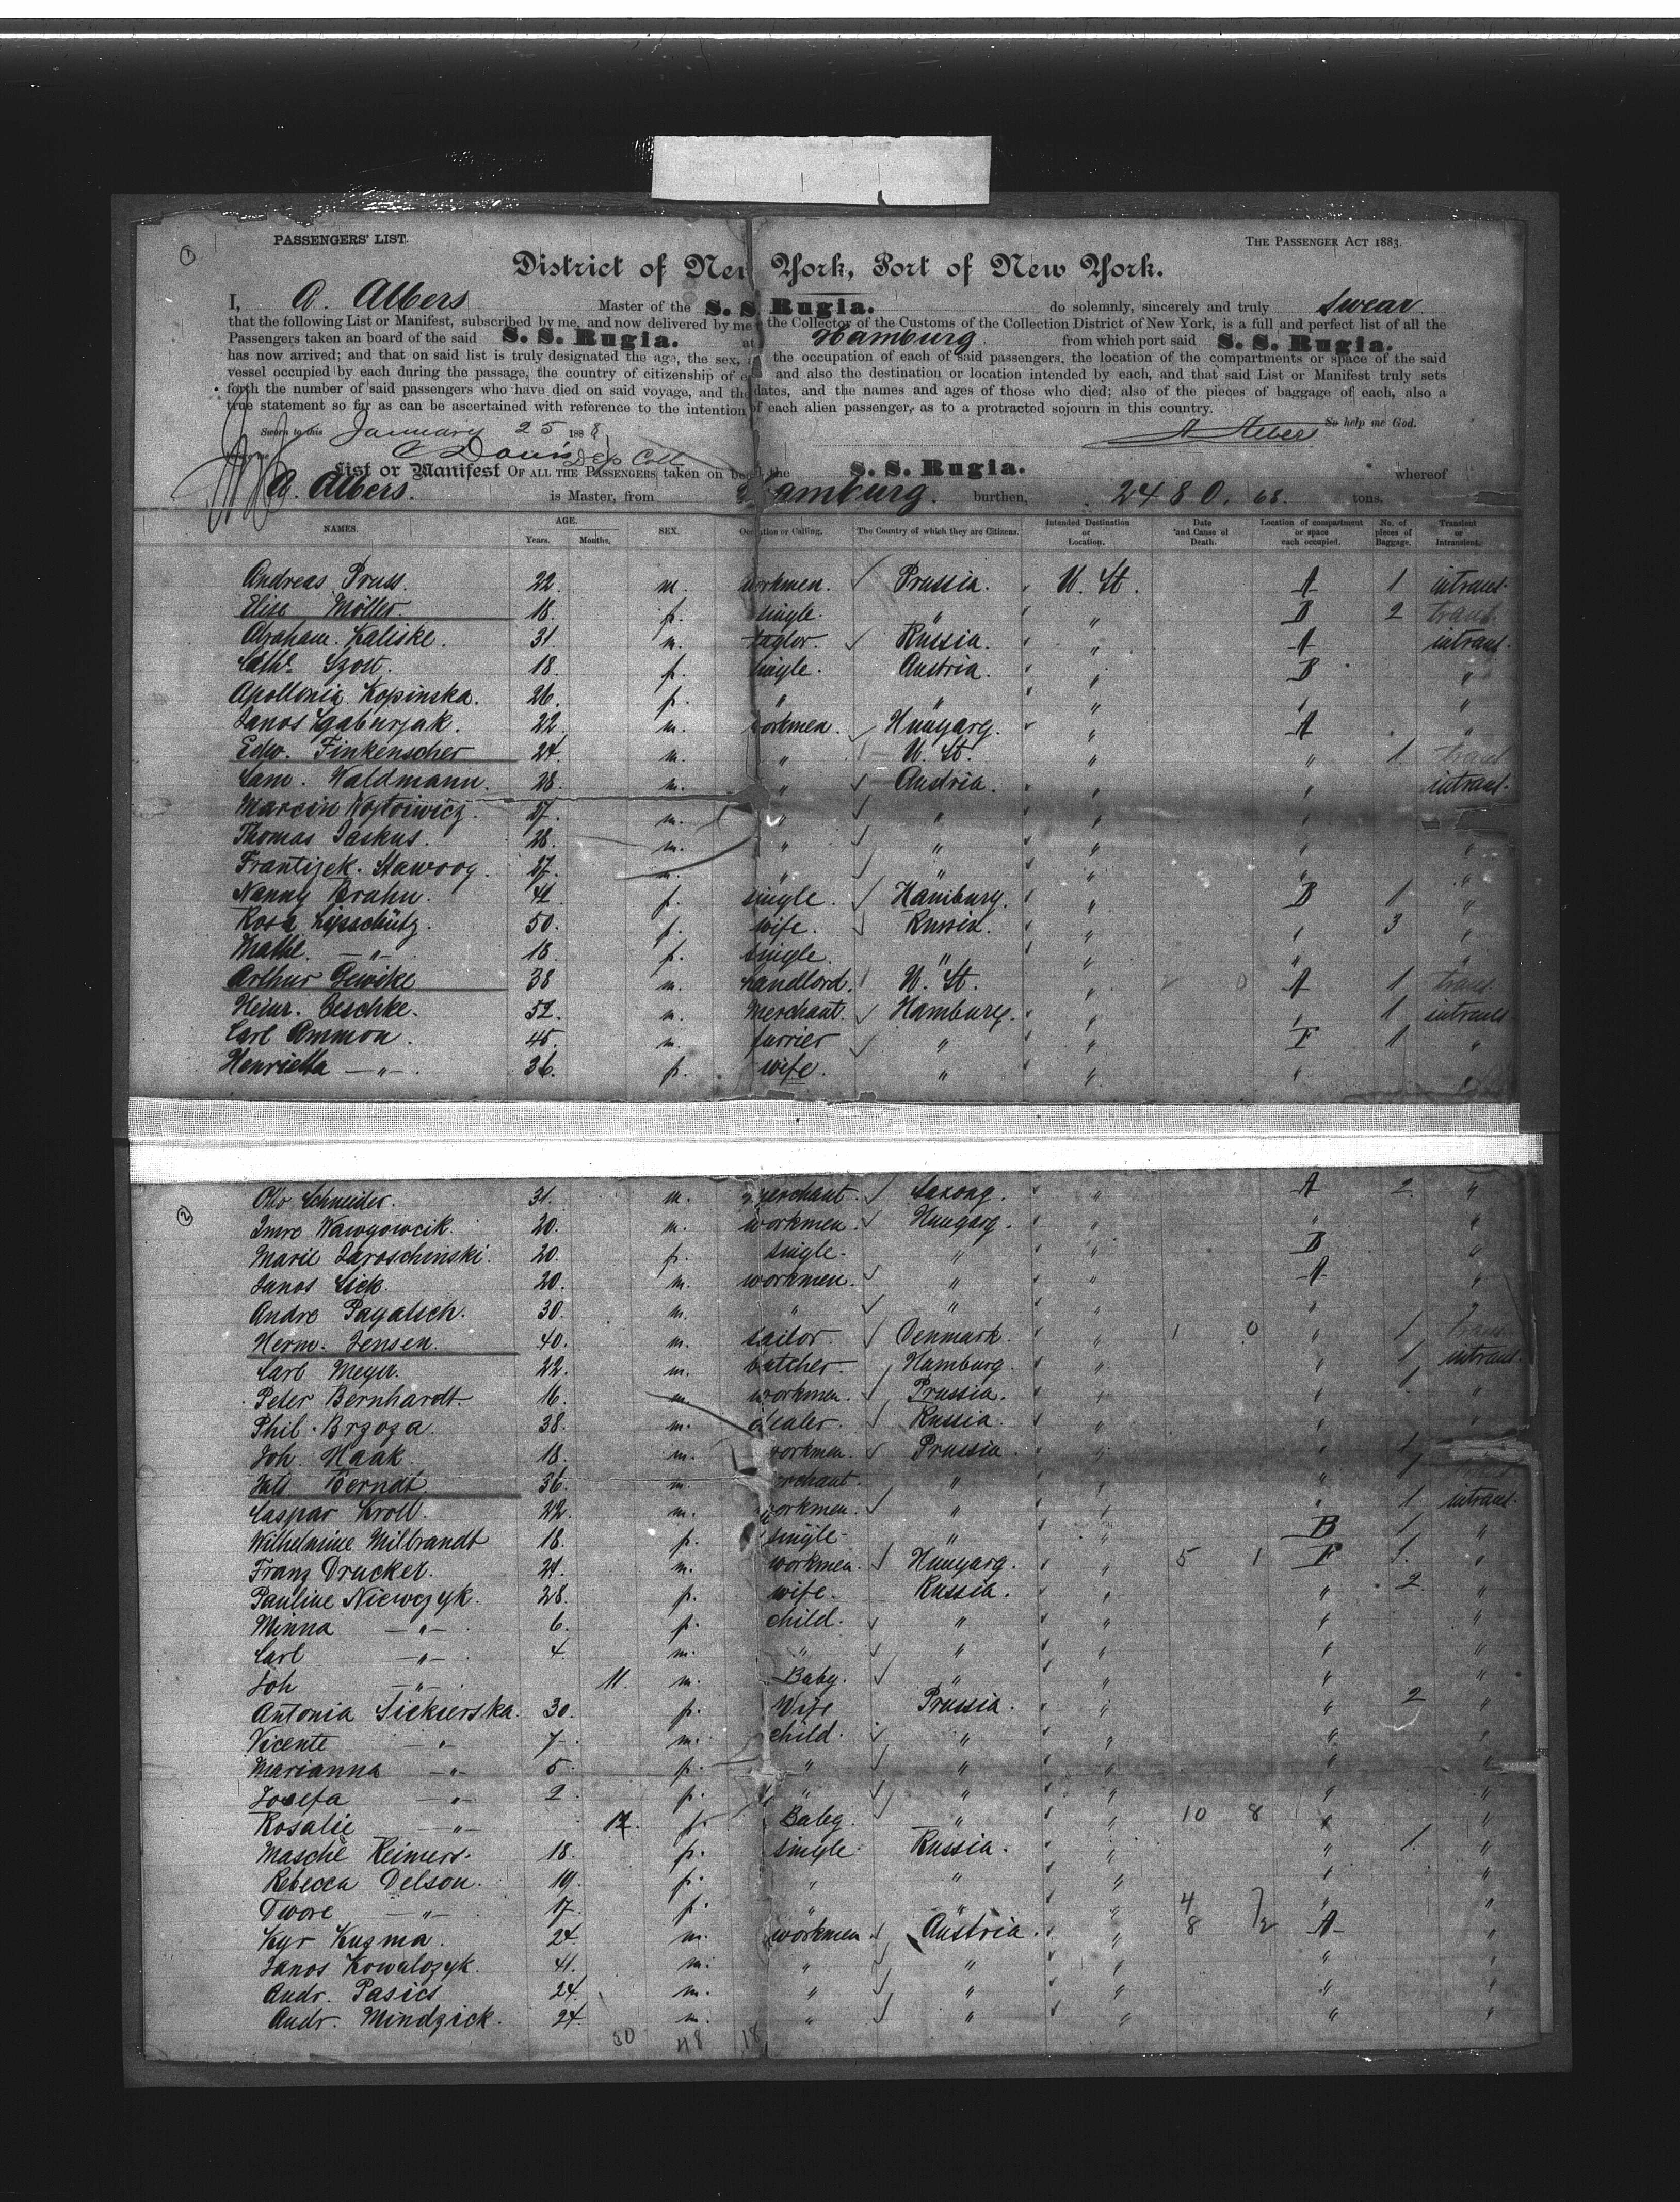 1
PASSENGERS' LIST.
THE PASSENGER ACT 1883.
District of New York, Port of New York.
I, A. Albers Master of the S. S. Rugia. do solemnly, sincerely and truly swear
that the following List or Manifest, subscribed by me, and now delivered by me the Collector of the Customs of the Collection District of New York, is a full and perfect list of all the
Passengers taken an board of the said S. S. Rugia. at Hamburg. from which port said S. S. Rugia.
has now arrived; and that on said list is truly designated the age, the sex, the occupation of each of said passengers, the location of the compartments or space of the said
vessel occupied by each during the passage, the country of citizenship of and also the destination or location intended by each, and that said List or Manifest truly sets
forth the number of said passengers who have died on said voyage, and the dates, and the names and ages of those who died; also of the pieces of baggage of each, also a
true statement so far as can be ascertained with reference to the intention of each alien passenger, as to a protracted sojourn in this country.
Sworn to this January 25 1888 So help me God.
A Albers
Dep Coll
List or Manifest OF ALL THE PASSENGERS taken on board the S. S. Rugia. whereof
A. Albers. is Master, from Hamburg. burthen, 2480. 68. tons.
NAMES. AGE. Years. Months. SEX. Occupation or Calling. The Country of which they are Citizens. Intended Destination or Location. Date and Cause of Death. Location of compartment or space each occupied. No. of pieces of Baggage. Transient or Intransient.
Andreas Pruss. 22. m. workmen. Prussia. U. St. A 1 intrans.
Elise Möller. 18. f. single. " " B 2 trans.
Abraham Kaliske. 31 m. taylor. Russia. " A intrans.
Cath. Szott. 18. f. single. Austria. " B "
Apollonia Kopinska. 26. f. " " " " "
Janos Gaburjak. 22. m. workmen. Hungary. " A "
Edw. Finkenscher 24. m. " U. St. " " 1. trans
Sam. Waldmann. 28. m. " Austria. " " intrans.
Marcin Wojtoiwicz. 27. m. " " " "
Thomas Jaskus. 28. m. " " " " "
Frantizek. Stawoog. 27. m. " " " " "
Nanny Bruhn. 41. f. single. Hamburg. " B 1 "
Rosa Lipschütz. 50. f. wife. Russia. " " 3 "
Mathl. —"— 18. f. single. " " " "
Arthur Gewicke 38 m. Landlord. U. St. " A 1 trans.
Heinr. Oeschke. 52. m. Merchant. Hamburg. " " 1 intrans.
Carl Ammon. 45. m. furrier " " F 1 "
Henrietta —"— 36. f. wife. " " " "
2
Otto Schneider. 31. m. merchant. Saxony. " A 2. "
Imre Wawyowcik. 20. m. workmen. Hungary. " " "
Marie Jaroschinski. 20. f. single. " " B "
Janos Sick. 20. m. workmen. " " A "
Andre Pagatsch. 30. m. " " " " "
Herm. Jensen. 40. m. sailor Denmark. " 1 0 " 1 trans.
Carl Meyer. 22. m. butcher Hamburg. " " 1 intrans.
Peter Bernhardt. 16. m. workmen. Prussia. " " 1. "
Phil. Brzoza. 38. m. dealer. Russia. " " "
Joh. Haak. 18. m. workmen. Prussia. " " 1
Berndt. 36. m. merchant. " " " 1
Caspar Kroll. 22. m. workmen. " " " 1 intrans.
Wilhelmine Milbrandt 18. f. single " " B 1 "
Franz Drucker. 21. m. workmen. Hungary. " 5 1 F 1. "
Pauline Niewczyk. 28. f. wife. Russia. " " 2 "
Minna —"— 6. f. child. " " " "
Carl —"— 4. m. " " " " "
Joh —"— 11. m. Baby. " " " "
Antonia Sickierska. 30. f. Wife Prussia. " " 2 "
Vicente —"— 7. m. child. " " " "
Marianna —"— 5. f. " " " " "
Josefa —"— 2. f. " " " " "
Rosalie —"— f. Baby. " " 10 8 " "
Masche Reimers. 18. f. single Russia. " " 1. "
Rebecca Delson. 19. f. " " " " "
Twore —"— 17. f. " " " 4 7 " "
Kyr Kuzma. 24. m. workmen. Austria. " 8 2 A "
Janos Kowalczyk. 41. m. " " " " "
Andr. Pasics 24. m. " " " " "
Andr. Mindzick. 24. m. " " " " "
30 48 18